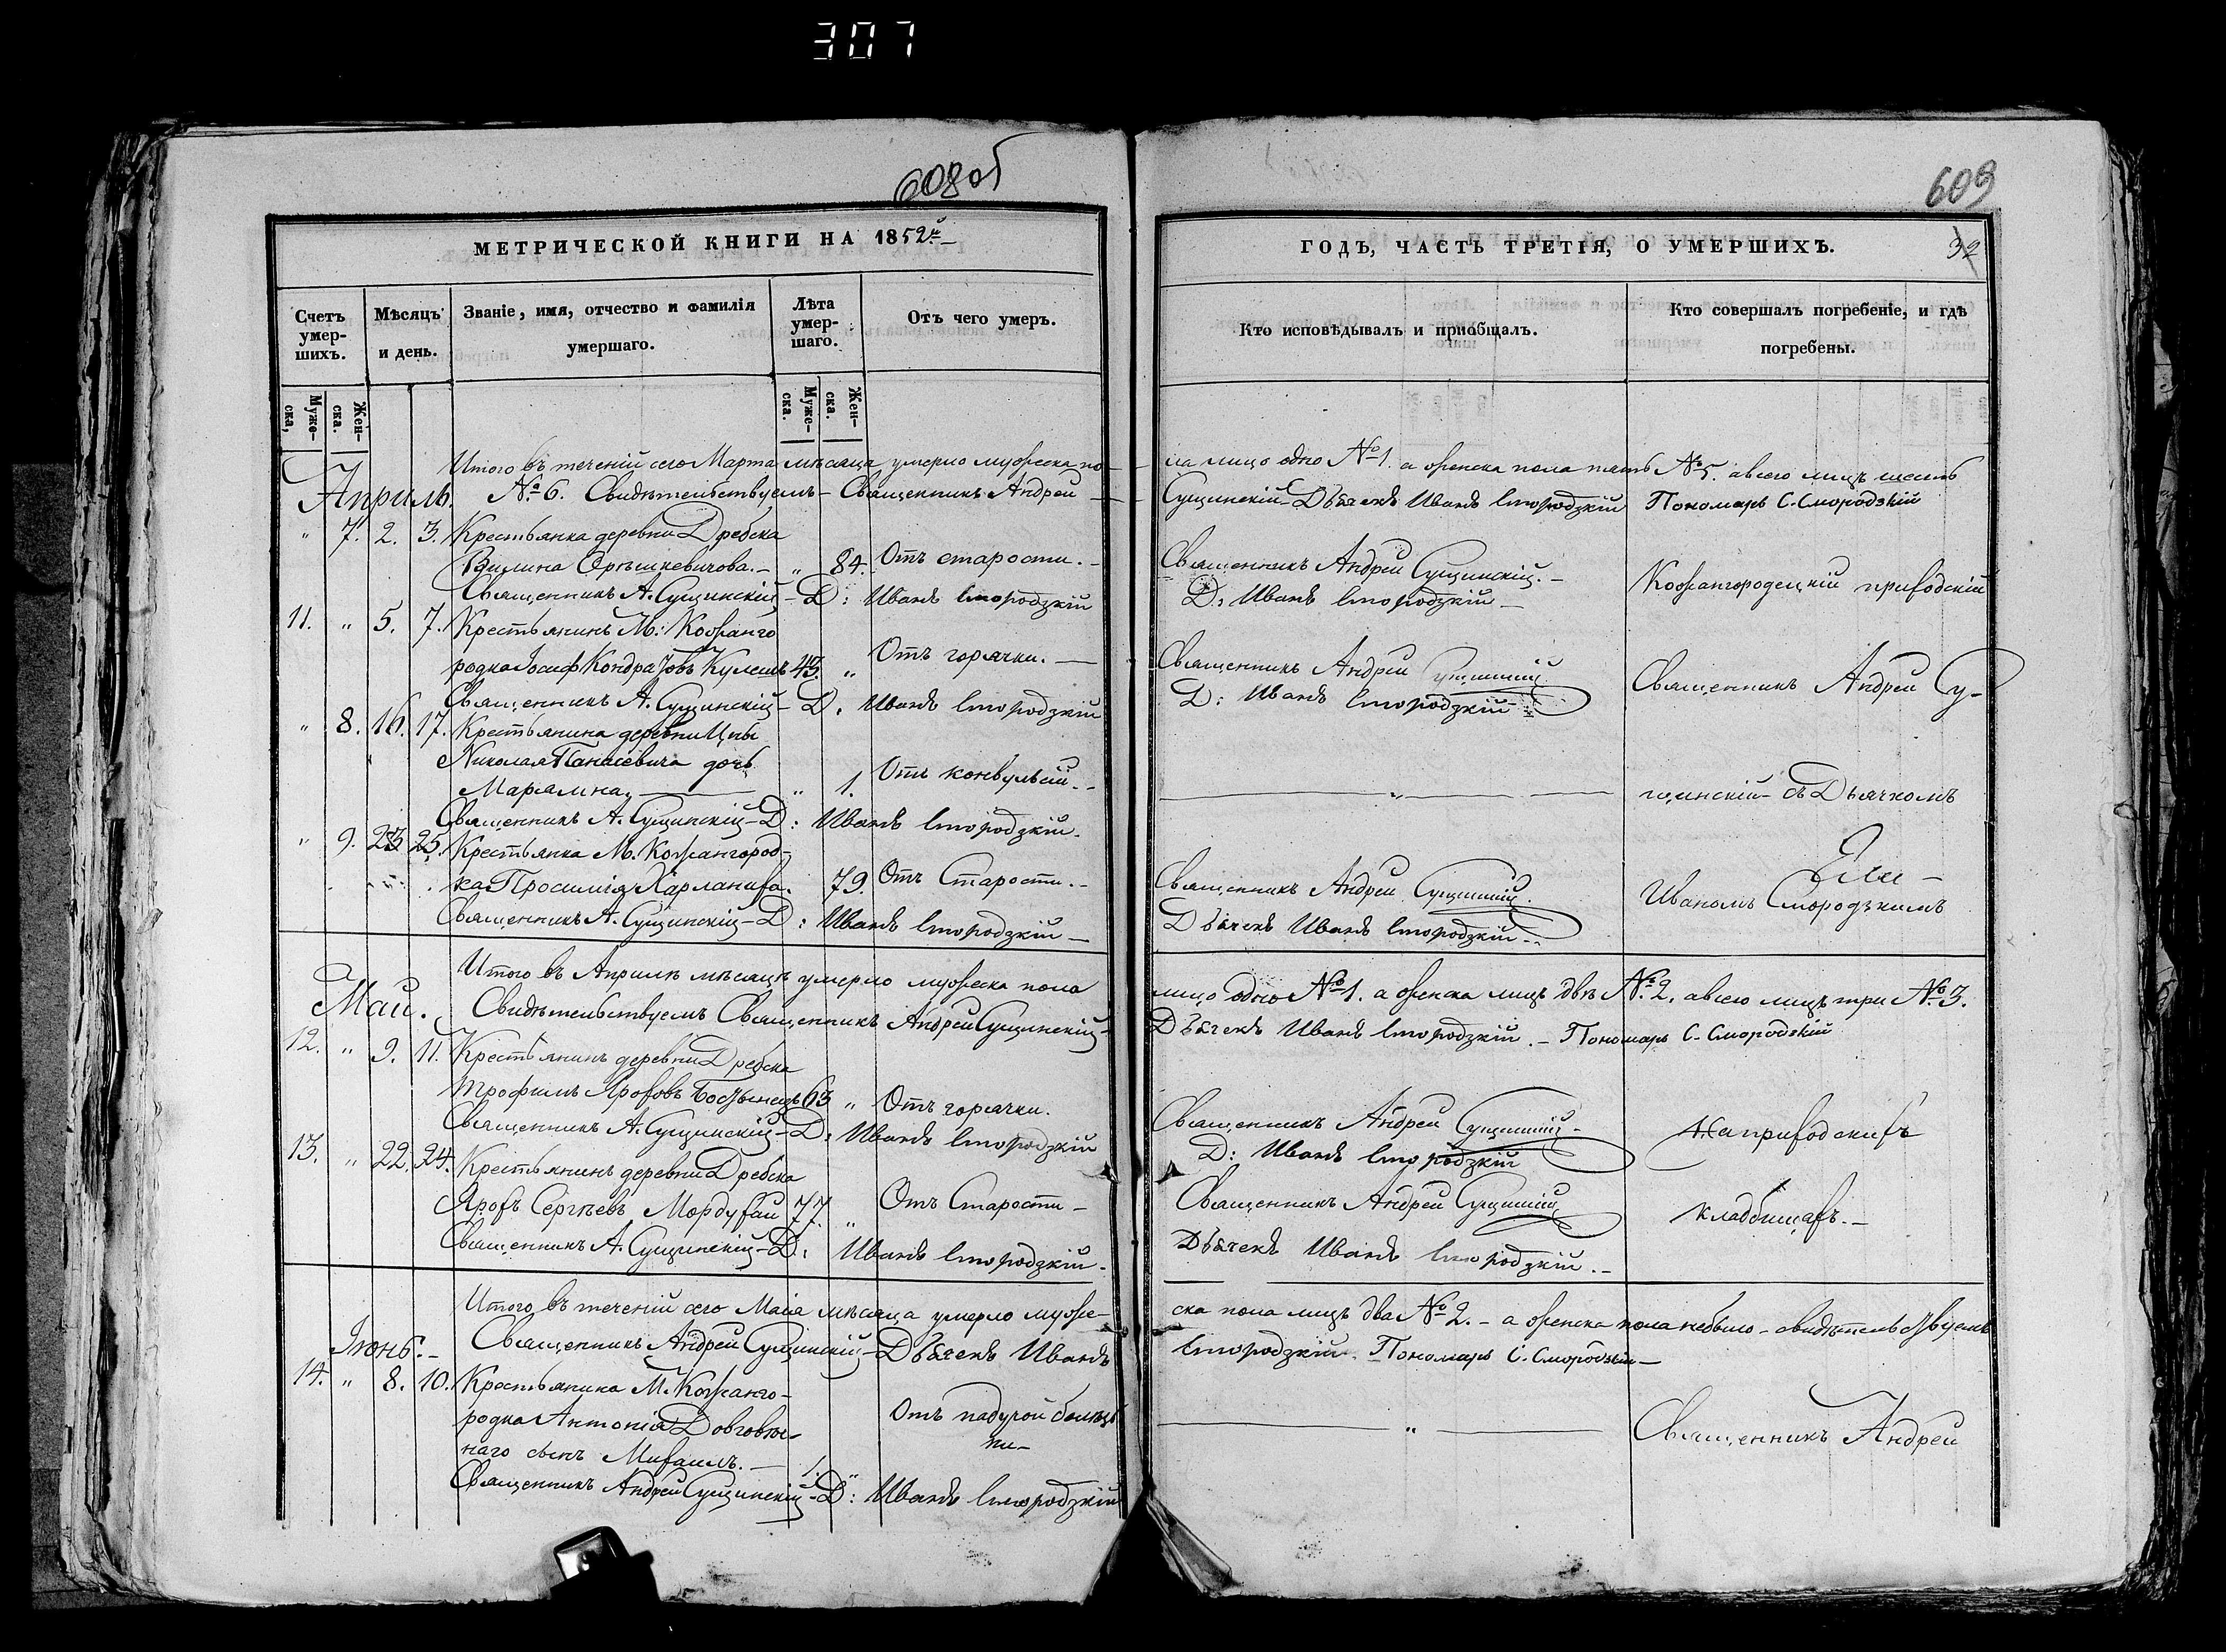 307
608об
МЕТРИЧЕСКОЙ КНИГИ НА 1852й
Счетъ умер-шихъ.
Мѣсяцъ и день.
Званіе, имя, отчество и фамилія умершаго.
Лѣта умер-шаго.
Отъ чего умеръ.
Муже-ска,
Жен-ска.
Муже-ска.
Жен-ска.
Итого въ теченіи сего Марта мѣсяца умерло мужеска по-
Апрѣль. № 6. Свидѣтельствуемъ – Священникъ Андрей
" 7. 2. 3. Крестьянка деревни Дребска
" 84. Отъ старости. –
Священникъ А. Сущинскій – Д: Иванъ Смородзкій
11. " 5. 7. Крестьянинъ М: Кожанго
родка Іосифъ Кондратовъ Кулешъ 43. " Отъ горячки. –
Священникъ А. Сущинскій – Д: Иванъ Смородзкій
" 8. 16. 17. Крестьянина деревни Цны
Николая Панасевича дочь
Марьяна, – " 1. Отъ конвульсій. –
Священникъ А. Сущинскій – Д: Иванъ Смородзкій.
" 9. 23 25. Крестьянка М. Кожангород-
ка 79. Отъ Старости. –
Священникъ А. Сущинскій – Д: Иванъ Смородзкій –
Итого въ Апрѣлѣ мѣсяцѣ умерло мужеска пола
Май. Свидѣтельствуемъ Священникъ Андрей Сущинскій –
12. " 9. 11. Крестьянинъ деревни Дребска
Трофимъ 63 " Отъ горячки.
Священникъ А. Сущинскій – Д: Иванъ Смородзкій
13. " 22. 24. Крестьянинъ деревни Дребска
Сергѣевъ Мордухай 77. " Отъ Старости –
Священникъ А. Сущинскій – Д: Иванъ Смородзкій.
Итого въ теченіи сего Маія мѣсяца умерло муже-
Іюнь. – Священникъ Андрей Сущинскій – Дьячекъ Иванъ
14. " 8. 10. Крестьянина М. Кожанго-
родка Антонія Довговѣч-
наго сынъ Михаилъ. – 1. " Отъ падучой болѣз
ни –
Священникъ Андрей Сущинскій – Д: Иванъ Смородзкій
609
ГОДЪ, ЧАСТЬ ТРЕТІЯ, О УМЕРШИХЪ.
32
Кто исповѣдывалъ и пріобщалъ.
Кто совершалъ погребеніе, и гдѣ погребены.
ла лицо одно № 1. а женска пола пять № 5. а всего лицъ шесть
Сущинскій – Дьячекъ Иванъ Смородзкій Пономарь С. Смородзкій
Священникъ Андрей Сущинскій. –
Д: Иванъ Смородзкій –
Кожангородецкій приходскій
Священникъ Андрей Сущинскій
Д: Иванъ Смородзкій –
Священникъ Андрей Су-
– " –
щинскій съ Дьячкомъ
Священникъ Андрей Сущинскій.
Дьячекъ Иванъ Смородзкій. –
Иваномъ Смородзкимъ
лицо одно № 1. а женска лицъ двѣ № 2. а всего лицъ три № 3.
Дьячекъ Иванъ Смородзкій. – Пономарь С. Смородзкій
Священникъ Андрей Сущинскій –
Д: Иванъ Смородзкій
на приходскихъ
Священникъ Андрей Сущинскій
Дьячекъ Иванъ Смородзкій. –
кладбищахъ. –
ска пола лицъ два № 2. – а женска пола небыло – свидѣтельствуемъ
Смородзкій. Пономарь С. Смородзкій –
– " –
Священникъ Андрей